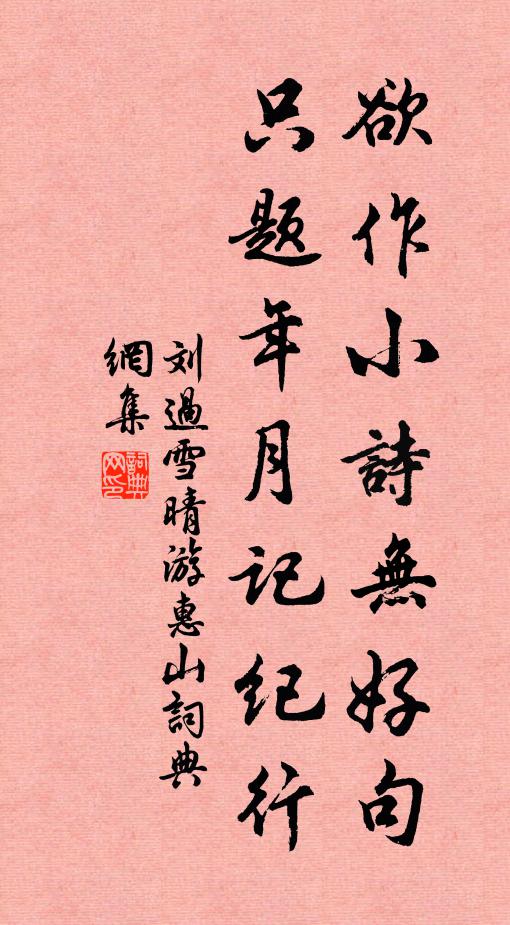 欲作小詩無好句
只題年月記纪行
刘過雪晴游惠山詞典
網集
詞典
网印